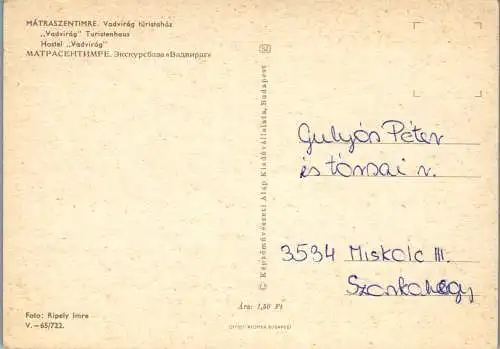 MÁTRASZENTIMRE. Vadvirág túristaház
„Vadvirág" Turistenhaus
Hostel „Vadvirág"
МАТРАСЕНТИМРЕ. Экскурсбаза «Вадвираг»
© Képzőművészeti Alap Kiadóvállalata, Budapest
Gulyós Péter
és tórsai r.
3534 Miskolc III.
Szarkahegy
Ára: 1,50 Ft
Foto: Ripely Imre
V.—65/722.